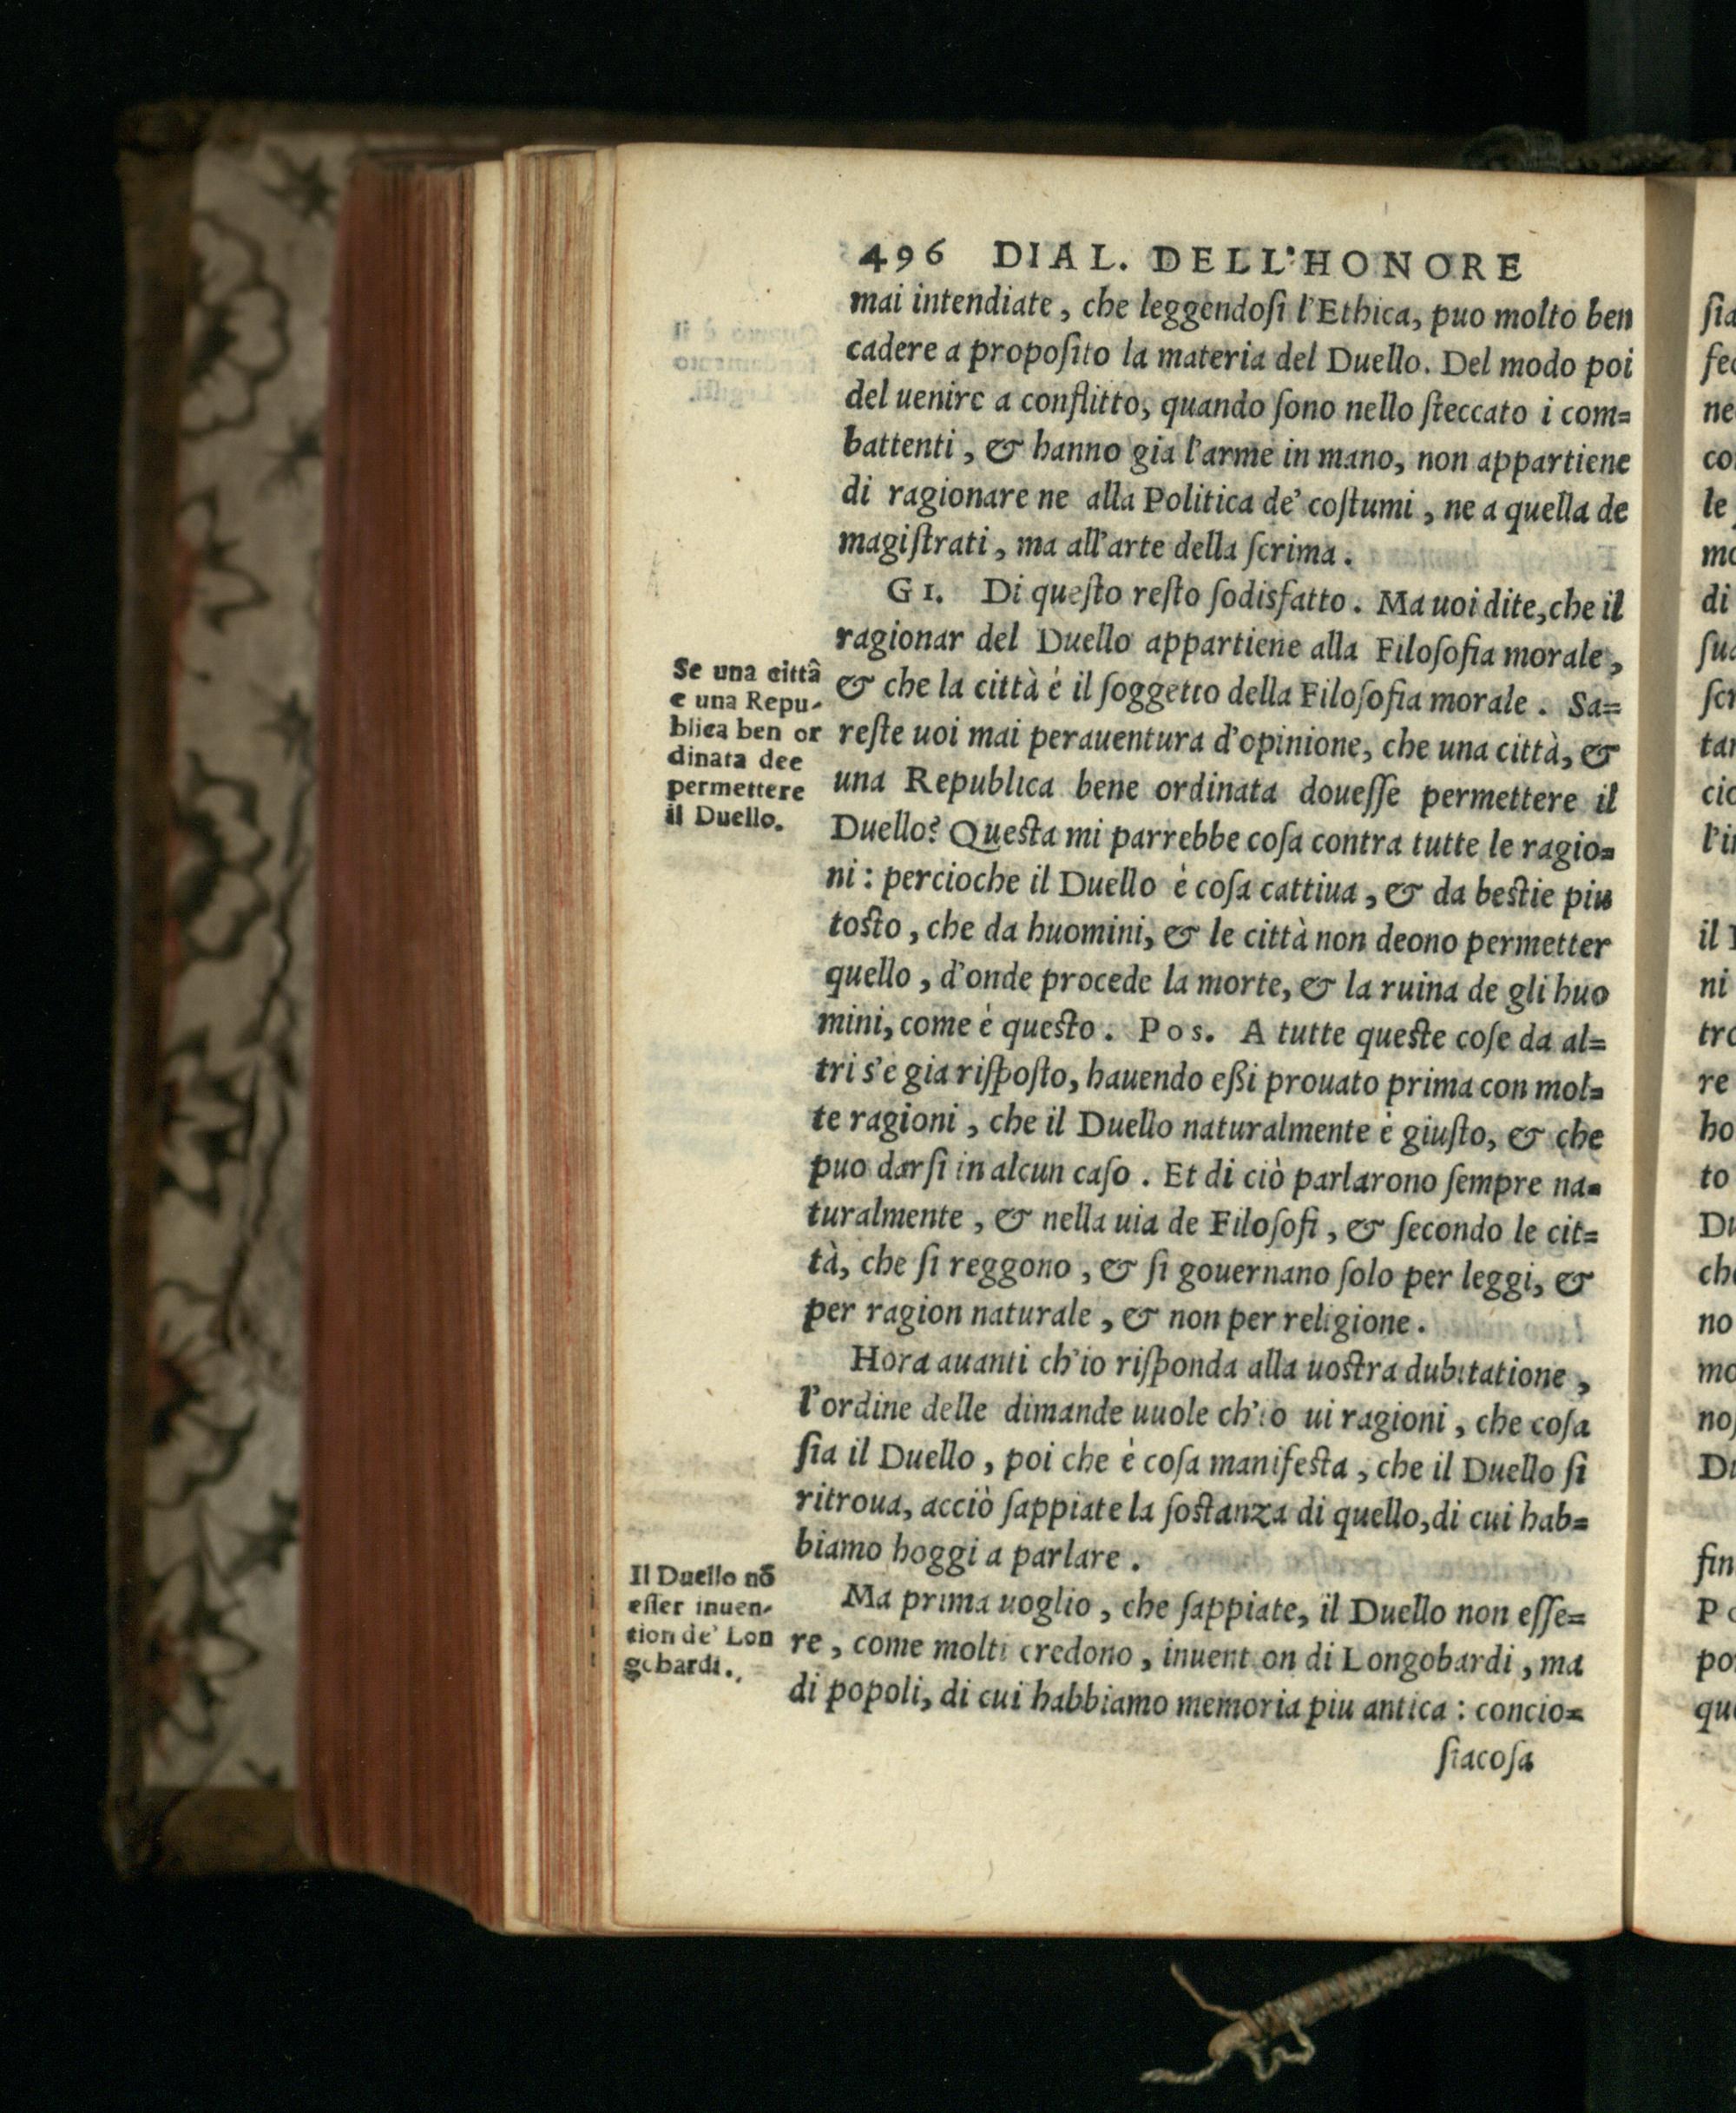 496 DIAL. DELL'HONORE
mai intendiate, che leggendoſi l'Ethica, puo molto ben
cadere a propoſito la materia del Duello. Del modo poi
del uenire a conflitto, quando ſono nello ſteccato i com=
battenti, & hanno gia l'arme in mano, non appartiene
di ragionare ne alla Politica de' coſtumi, ne a quella de
magiſtrati, ma all'arte della ſcrima.
GI. Di queſto reſto ſodisfatto. Ma uoi dite, che il
ragionar del Duello appartiene alla Filoſofia morale,
& che la città é il ſoggetto della Filoſofia morale. Sa=
reſte uoi mai perauentura d'opinione, che una città, &
una Republica bene ordinata doueſſe permettere il
Duello? Queſta mi parrebbe coſa contra tutte le ragio=
ni: percioche il Duello è coſa cattiua, & da beſtie piu
toſto, che da huomini, & le città non deono permetter
quello, d'onde procede la morte, & la ruina de gli huo
mini, come è queſto. Pos. A tutte queſte coſe da al=
tri s'e gia riſpoſto, hauendo eßi prouato prima con mol=
te ragioni, che il Duello naturalmente è giuſto, & che
puo darſi in alcun caſo. Et di ciò parlarono ſempre na=
turalmente, & nella uia de Filoſofi, & ſecondo le cit=
tà, che ſi reggono, & ſi gouernano ſolo per leggi, &
per ragion naturale, & non per religione.
Hora auanti ch'io riſponda alla uoſtra dubitatione,
l'ordine delle dimande uuole ch'io ui ragioni, che coſa
ſia il Duello, poi che è coſa manifeſta, che il Duello ſi
ritroua, acciò ſappiate la ſoſtanza di quello, di cui hab=
biamo hoggi a parlare.
Ma prima uoglio, che ſappiate, il Duello non eſſe=
re, come molti credono, inuention di Longobardi, ma
di popoli, di cui habbiamo memoria piu antica: concio=
ſiacoſa
Se una città
e una Repu-
blica ben or
dinata dee
permettere
il Duello.
Il Duello nō
eſſer inuen-
tion de' Lon
gobardi.
ſia
ne
le
di
l'i
ni
re
to
no